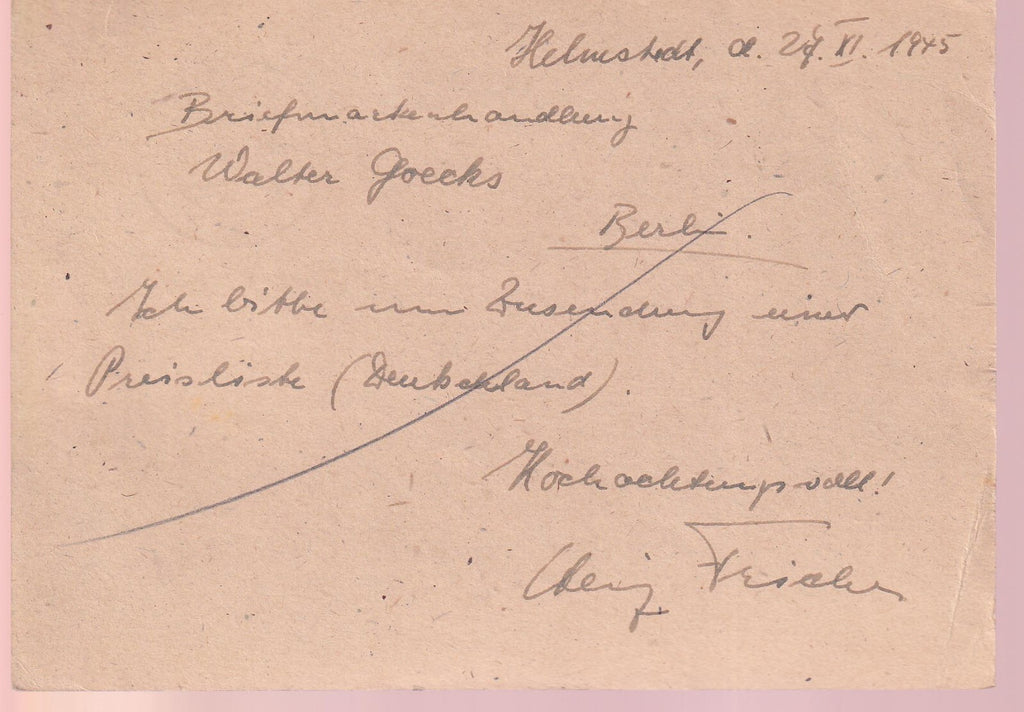 Helmstedt, d. 24. XI. 1945
Briefmarkenhandlung
Walter Goecks
Berlin.
Ich bitte um Zusendung einer
Preisliste (Deutschland).
Hochachtungsvoll!
Heinz